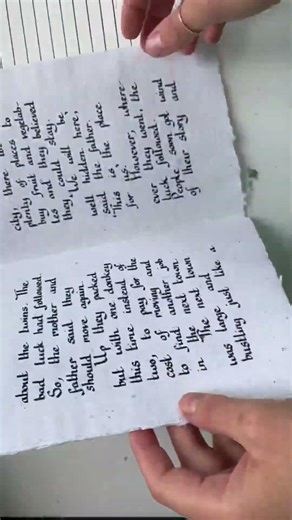 about the twins. The
bad luck had followed.
So, the mother and
father said they
should move again.
Up they packed
but with one donkey
this time instead of
two, to pay for the
cost of moving and
to find another job
in the next town.
The next town
was large and
bustling just like a
city, there
plenty of places to
buy fruit and vegetab-
les and believed
they could stay.
"We will be
well hidden here,"
said the father.
"This is the place
for us."
However, where-
ever they went, the
luck followed
People soon got wind
of their story and